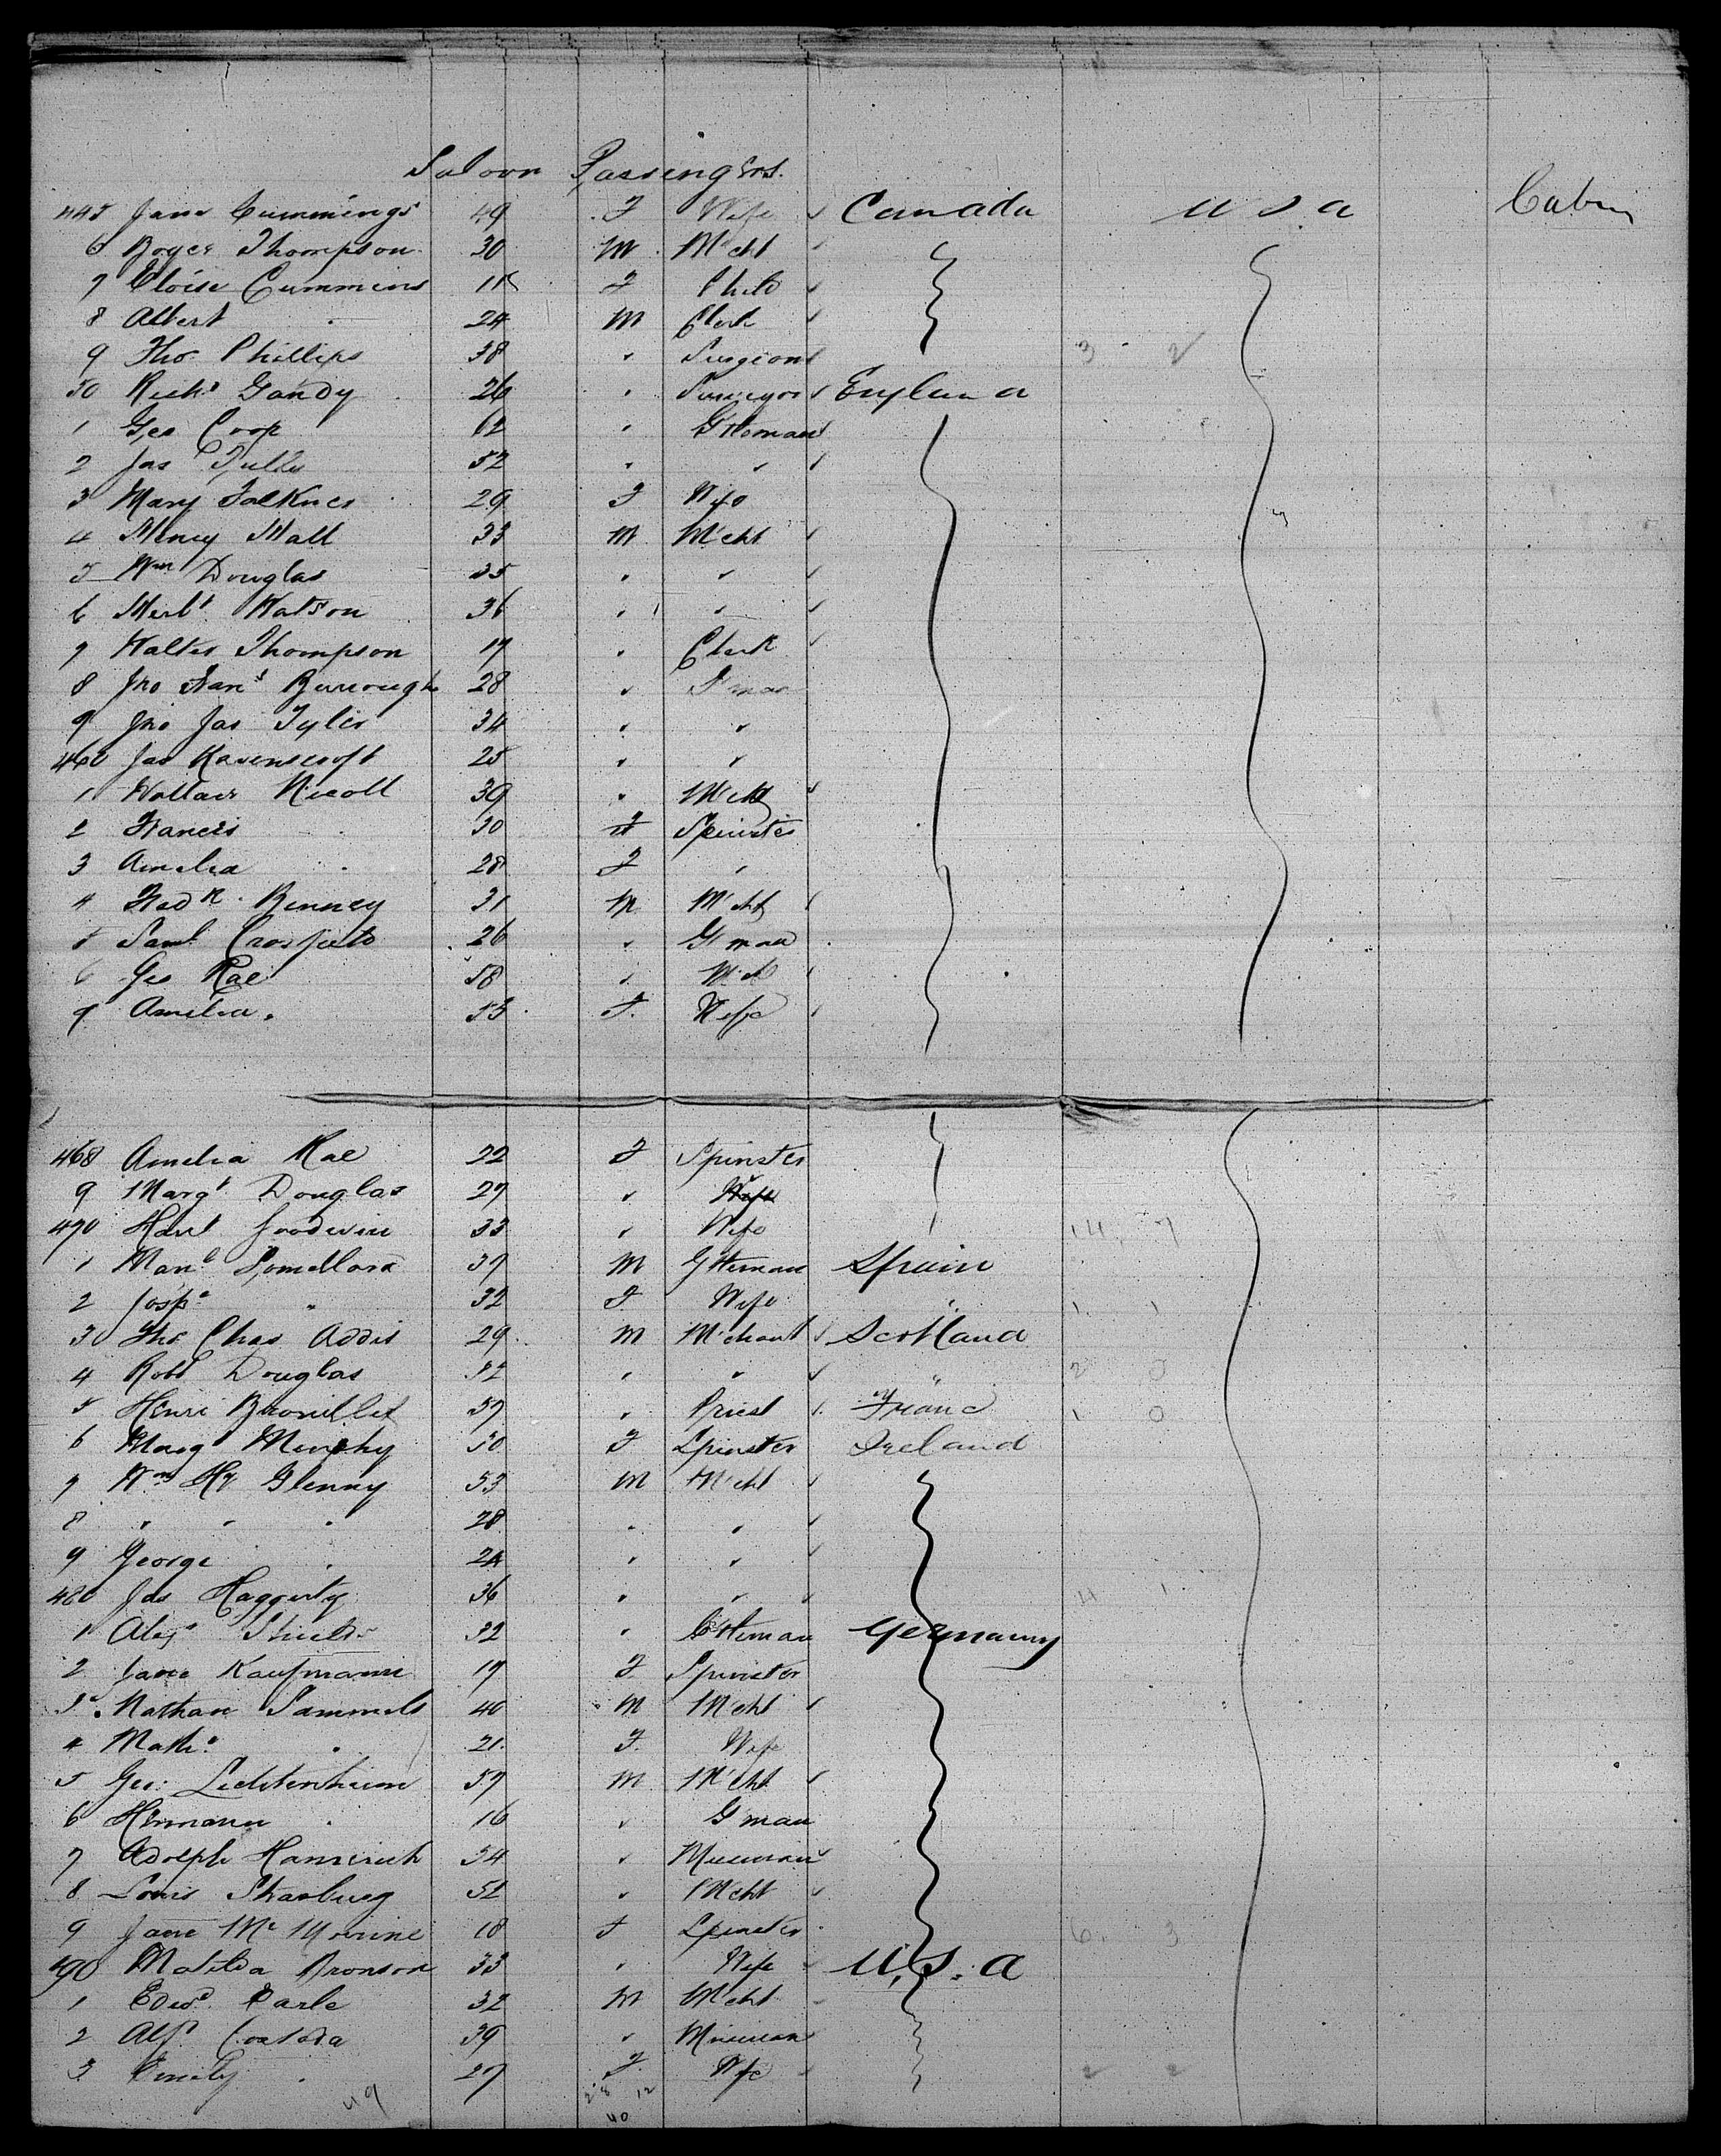 Saloon Passengers.
445 Jane Cummings 49 F Wife Canada U S A Cabin
6 Boyce Thompson 30 M Mcht
7 Eloise Cummins 11 F Child
8 Albert " 24 M Clerk
9 Thos Phillips 38 " Surgeon 3 2
50 Richd Gandy 26 " Surveyor England
1 Geo Coop 62 " Gtleman
2 Jas 52 " "
3 Mary Falkner 29 F Wife
4 Henry Hall 33 M Mcht
5 Wm Douglas 35 " "
6 Herbt Watson 36 " "
7 Walter Thompson 17 " Clerk
8 Jno Burrough 28 " Gman
9 Jno Jas Tyler 34 " "
460 Jas Ravenscroft 25 " "
1 Wallace Nicoll 39 " Mcht
2 Francis " 30 F Spinster
3 Amelia " 28 F "
4 Fredk Binney 31 M Mcht
5 Saml Crosfield 26 " Gman
6 Geo Rae 58 " Mcht
7 Amelia " 53 F Wife
468 Amelia Rae 22 F Spinster
9 Margt Douglas 27 " Wife
470 Hart Goodwin 33 " Wife 14 7
1 Manl 37 M Gtleman Spain
2 Jospa " 32 F Wife " 1 1
3 Thos Chas Addis 29 M Mchant Scotland
4 Robt Douglas 32 " " " 2 0
5 Henri Brouillet 57 " Priest France 1 0
6 Margt Murphy 50 F Spinster Ireland
7 Wm Hy Glenny 53 M Mcht
8 " " " 28 " "
9 George " 24 " "
480 Jas Haggerty 36 " " 4 1
1 Alexr 32 " Gtleman Germany
2 Jane Kaufmann 17 F Spinster
3 Nathan Sammels 40 M Mcht
4 Matha " 21 F Wife
5 Geo: Lichtenheim 57 M Mcht
6 Hermann " 16 " Gman
7 Adolph 54 " Musician
8 Louis Strasburg 52 " Mcht
9 Jane Mc 18 F Spinster 6 3
490 Matilda Bronson 33 " Wife U.S.A
1 Edwd Earle 32 M Mcht
2 Alfd 39 " Musician
3 Emily " 27 F Wife 2 2
49 28 12
40